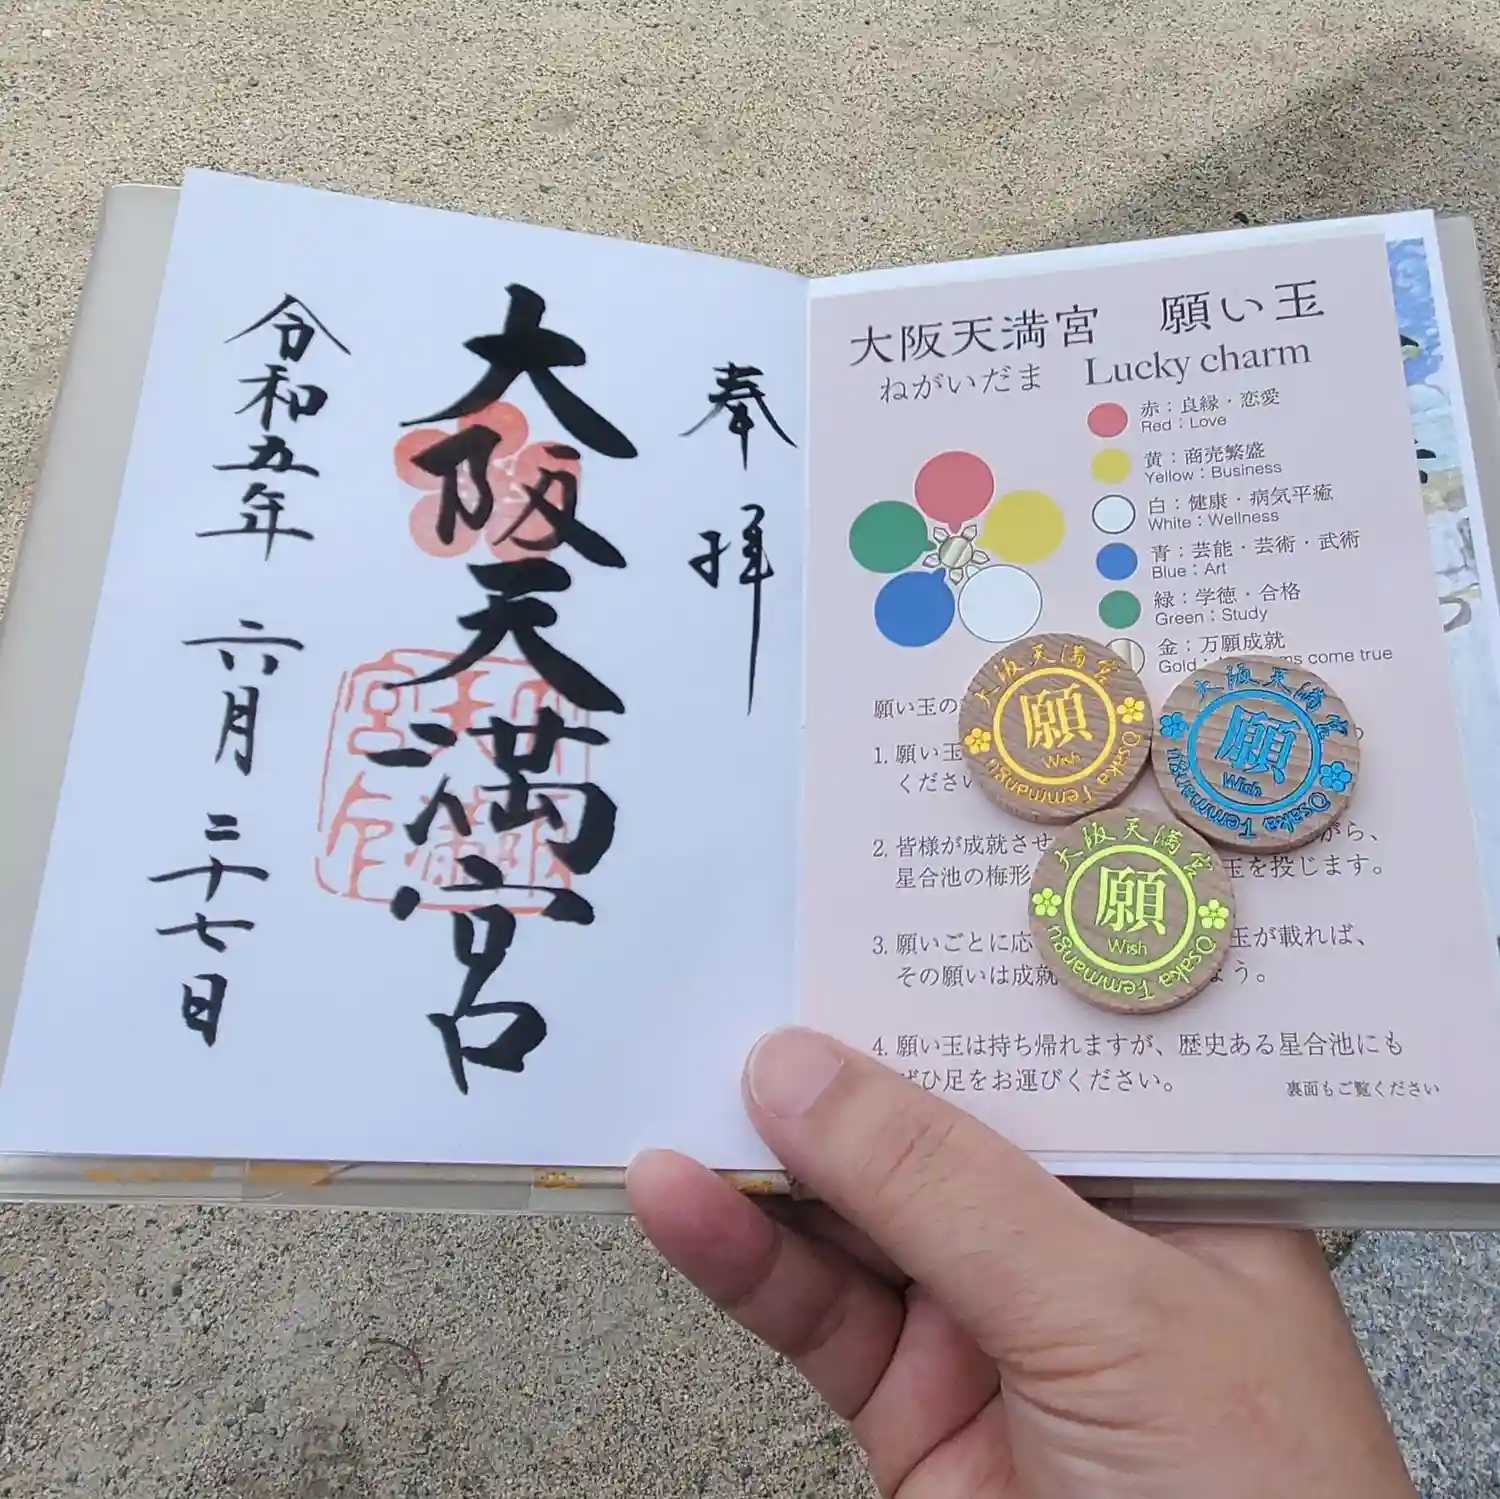 奉拝
大阪天満宮
令和五年 六月 二十七日
大阪天満宮 願い玉
ねがいだま Lucky charm
赤：良縁・恋愛
Red：Love
黄：商売繁盛
Yellow：Business
白：健康・病気平癒
White：Wellness
青：芸能・芸術・武術
Blue：Art
緑：学徳・合格
Green：Study
金：万願成就
Gold： come true
願い玉の
1. 願い玉
くださ
2. 皆様が成就させ がら、
星合池の梅形 玉を投じます。
3. 願いごとに応 玉が載れば、
その願いは成就 ょう。
4. 願い玉は持ち帰れますが、歴史ある星合池にも
ぜひ足をお運びください。
裏面もご覧ください
大阪天満宮
願
Wish
Osaka Temmangu
大阪天満宮
願
Wish
Osaka Temmangu
大阪天満宮
願
Wish
Osaka Temmangu